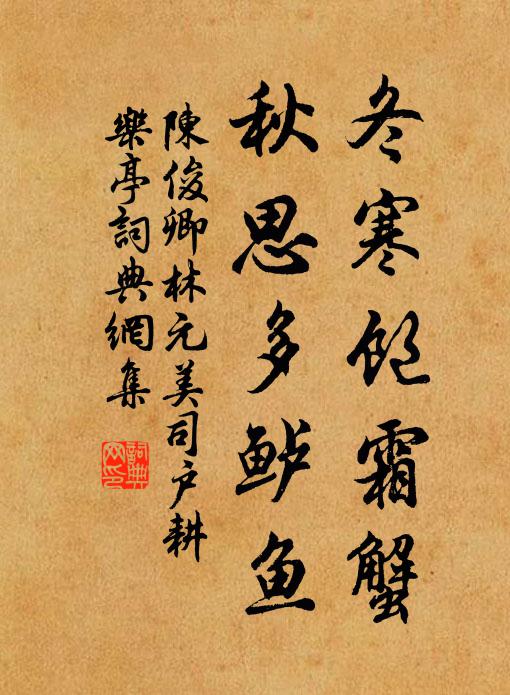 冬寒飽霜蟹
秋思多鲈鱼
陳俊卿林元美司户耕
樂亭詞典網集
詞典网印